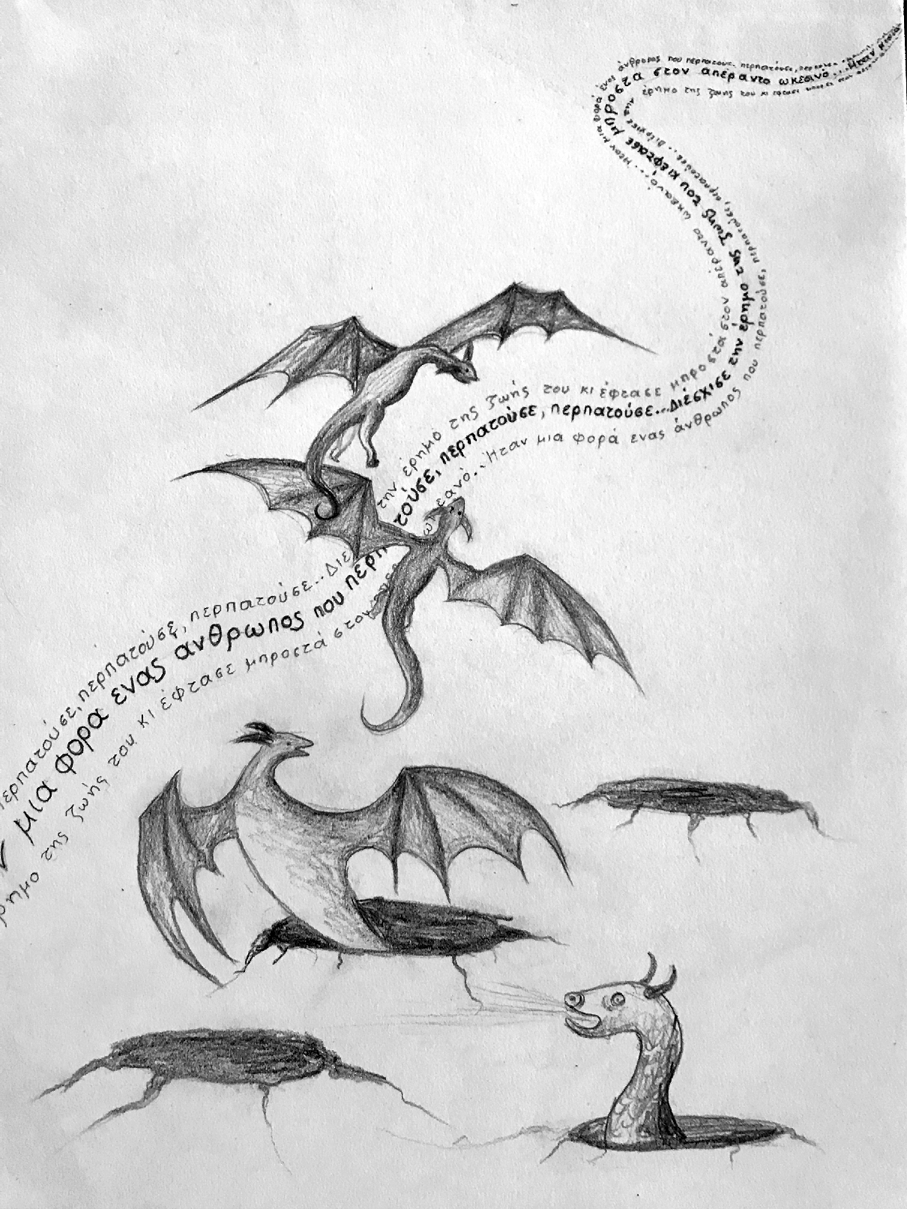 περπατούσε, περπατούσε, περπατούσε...Διέ την έρημο της ζωής του κι έφτασε μπροστά στον απέραντο ωκεανό....Ήταν μια φορά ένας άνθρωπος που περπατούσε, περπατούσε,
ν μια φορά ενας άνθρωπος που περπ τούσε, περπατούσε, περπατούσε...Διέσχισε την έρημο της ζωής του κι έφτασε μπροστά στον απέραντο ωκεανό...Ήταν μια
έρημο της ζωής του κι έφτασε μπροστά στον ωκεανό...Ήταν μια φορά ενας άνθρωπος που περπατούσε, περπατούσε, περπατούσε...Διέσχισε την έρημο της ζωής του κι έφτασε